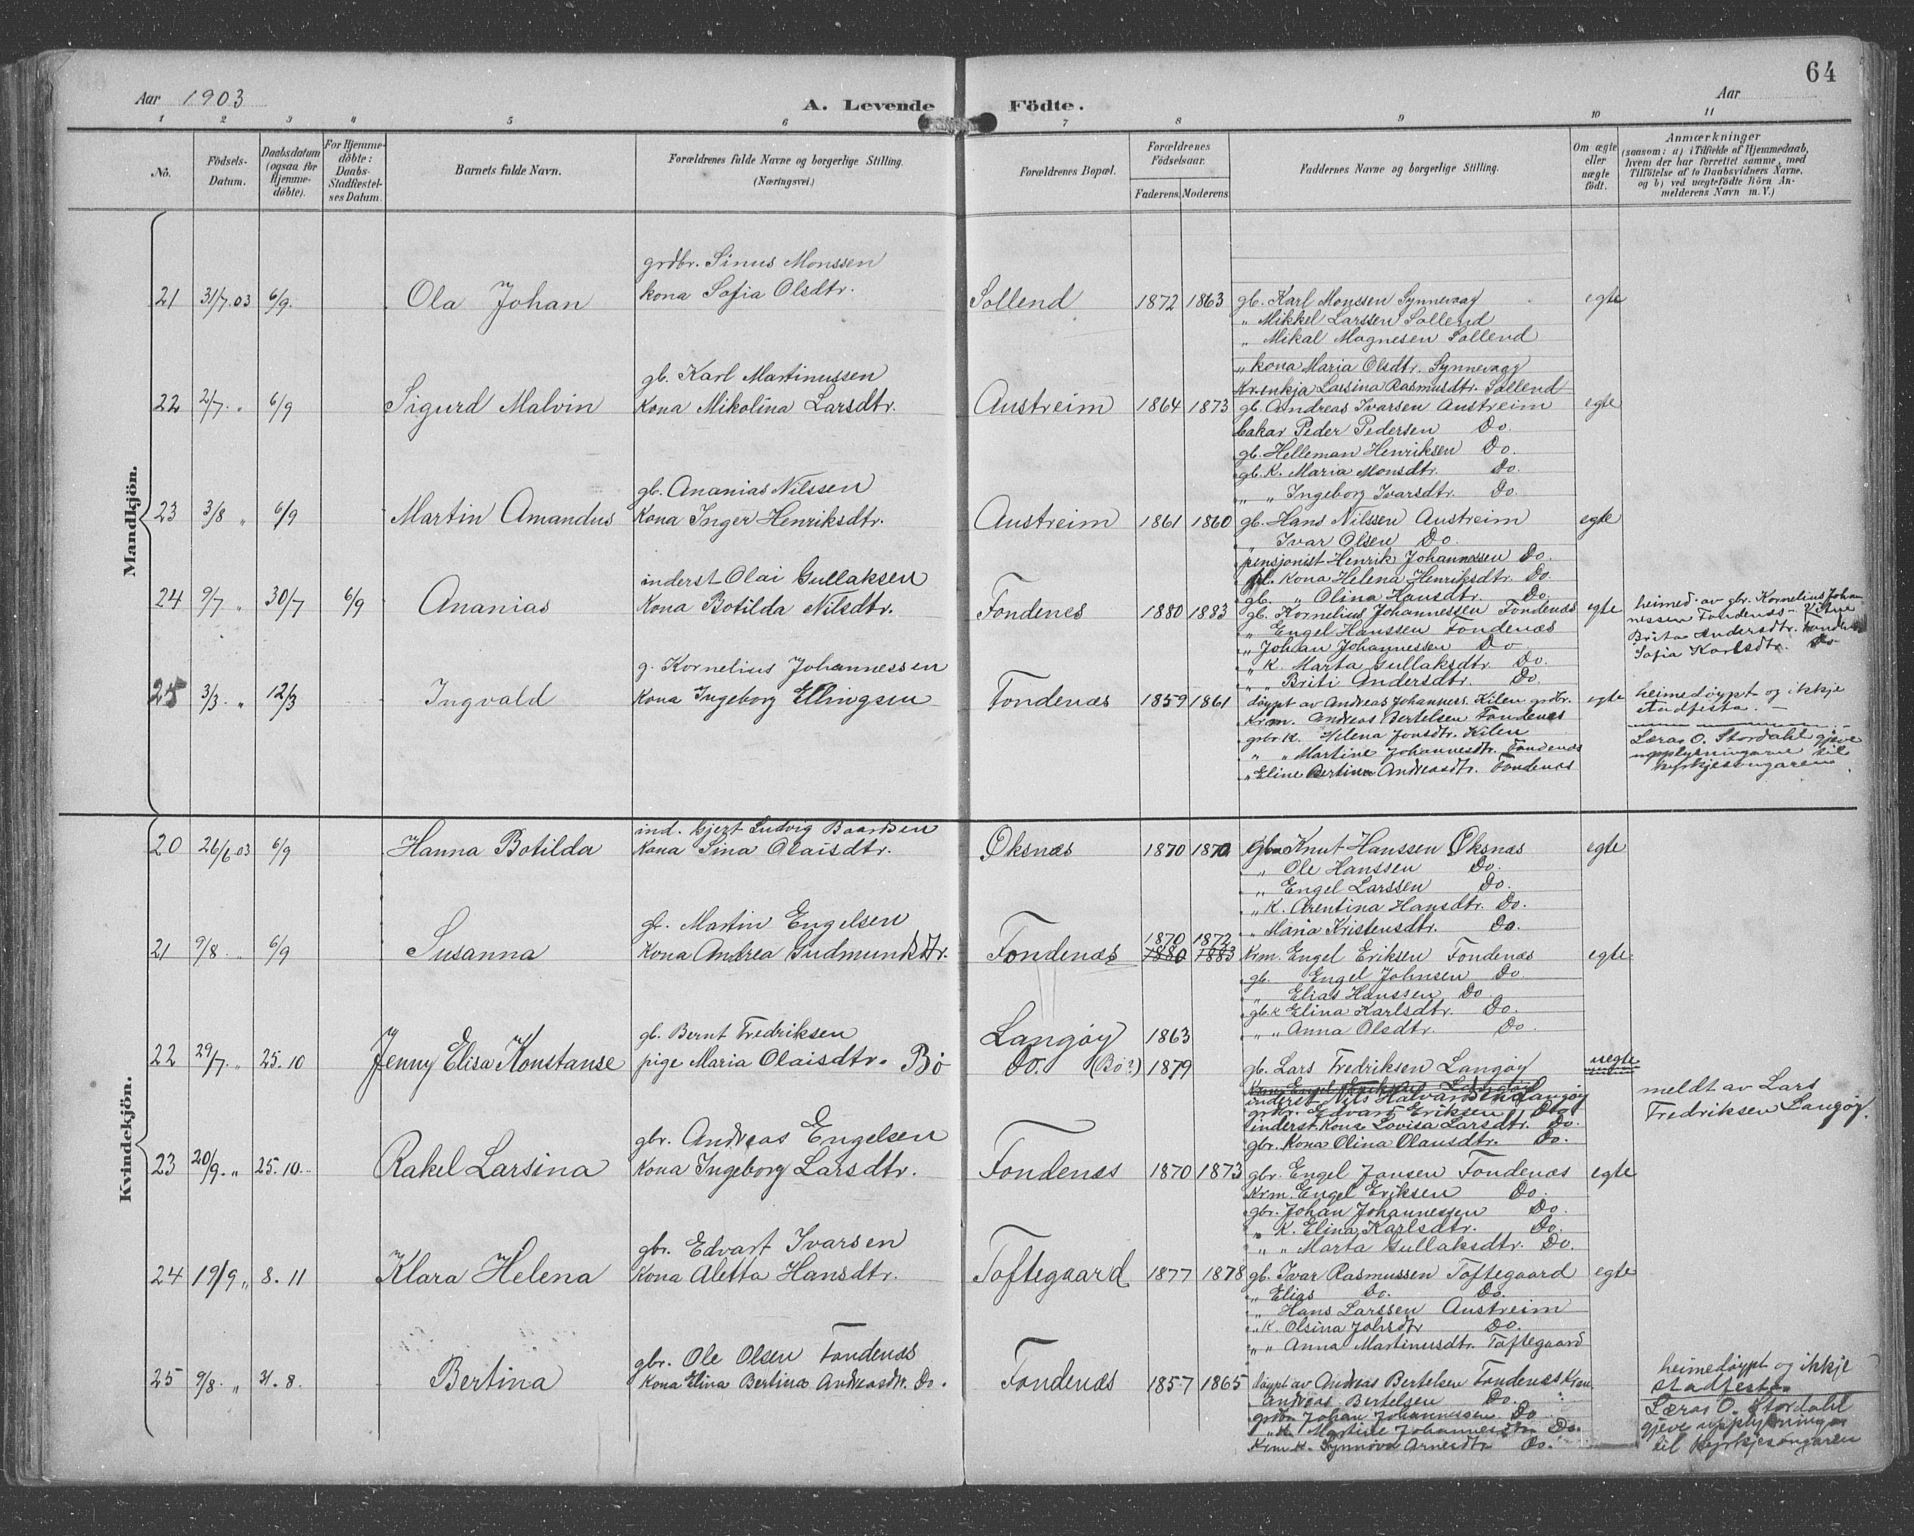 64
Aar 1903
A. Levende Födte.
Aar
1 2 3 4 5 6 7 8 9 10 11
No.
Födsels-Datum.
Daabsdatum (ogsaa for Hjemmedöbte).
For Hjemmedöbte: Daabs-Stadfæstelses Datum.
Barnets fulde Navn.
Forældrenes fulde Navne og borgerlige Stilling. (Næringsvei.)
Forældrenes Bopæl.
Forældrenes Födselsaar.
Faderens. Moderens.
Faddernes Navne og borgerlige Stilling.
Om ægte eller uægte födt.
Anmærkninger
(saasom: a) i Tilfælde af Hjemmedaab, hvem der har forrettet samme, med Tilföielse af to Daabsvidners Navne, og b) ved uægtefödte Börn Anmelderens Navn m. V.)
Mandkjön.
grdbr. Sinus Monssen
21 31/7.03 6/9. Ola Johan kona Sofia Olsdtr. Sollend 1872 1863 gb. Karl Monssen Synnevag egte
" Mikkel Larssen Sollend
" Mikal Magnesen Sollend
" kona Maria Olsdtr. Synnevag
gb. Karl Martinussen
Larsina Rasmusdtr. Sollend
22 2/7. " 6/9 Sigurd Malvin Kona Mikolina Larsdtr. Austreim 1864 1873 gb. Andreas Ivarsen Austreim egte
bakar Peder Pedersen Do.
gb. Helleman Henriksen Do.
gb. K. Maria Monsdtr. Do
" " Ingeborg Ivarsdtr. Do
gb. Ananias Nilssen
23 3/8 " 6/9 Martin Amandus Kona Inger Henriksdtr. Austreim 1861 1860 gb. Hans Nilssen Austreim egte
" Ivar Olsen Do.
pensjonist Henrik Johannessen Do.
Kona Helena Henriksdtr. Do
inderst Olai Gullaksen
gb. " Olina Hansdtr. Do
24 9/7 " 30/7 6/9 Ananias Kona Botilda Nilsdtr. Fondenes 1880 1883 gb. Kornelius Johannessen Fondenæs egte heimed. av gbr. Kornelius Johannessen Fondenæs
" Engel Hanssen Fondenæs
" Johan Johannessen Do
" K. Marta Gullaksdtr. Do.
" " Briti Andersdtr. Do.
Brita Andersdtr.
Sofia Karlsdtr. Do
g. Kornelius Johannessen
25 3/3. " 12/3 Ingvald Kona Ingeborg Ellingsen Fondenæs 1859 1861 döypt av Andreas Johanness. Kilen grdbr. egte heimedöypt og ikkje stadfesta.
Krm. Andreas Bertelsen Fondenæs
grbr K. Helena Jonsdtr. Kilen
" " Martine Johannesdtr. Fondenæs
" Eline Bertine Andreasdtr. Fondenæs
Lærar O. Stordahl gjeve
upplysningane til
kyrkjesongaren
Kvindekjön.
ind. Gjert Ludvig Baardsen
20 26/6.03 6/9 Hanna Botilda Kona Sina Olaisdtr. Öksnæs 1870 1870 gbr Knut Hanssen Öksnæs egte
" Ole Hanssen Do.
" Engel Larssen Do.
" K. Arentina Hansdtr. Do.
" Maria Kristensdtr. Do.
gb. Martin Engelsen
1870 1872
21 9/8. " 6/9 Susanna Kona Andrea Gudmundsdtr. Fondenæs 1880 1883 Krm. Engel Eriksen Fondenæs egte.
gb. Engel Johnsen Do
" Elias Hanssen Do
gb. K Elina Karlsdtr. Do.
" " Anna Olsdtr. Do
gb. Bernt Fredriksen Langöy 1863
22 29/7. " 25.10 Jenny Elisa Konstanse pige Maria Olaisdtr. Bö Do. (Bö?) 1879 gb. Lars Fredriksen Langöy uegte
Krm. Engel Eriksen Langöy
inderst Nils Halvardsen Langöy
grbr. Edvart Eriksen Do
inderst Kona Lovisa Larsdtr. Do.
gbr. Kona Olina Olausdtr. Do.
meldt av Lars
Fredriksen Langöy.
gbr. Andreas Engelsen
23 20/9. " 25.10. Rakel Larsina Kona Ingeborg Larsdtr. Fondenæs 1870 1873 gbr. Engel Jansen Fondenæs egte
Krm. Engel Eriksen Do.
gbr. Johan Johannessen Do.
" K. Elina Karlsdtr. Do.
" " Marta Gullaksdtr. Do.
gbr. Edvart Ivarsen
24 19/9 " 8.11 Klara Helena Kona Aletta Hansdtr. Toftegaard 1877 1878 gb. Ivar Rasmussen Toftegaard egte
" Elias Do. Do.
" Hans Larssen Austreim
" K. Olsina Johsdtr Do.
" " Anna Martinusdtr. Toftegaard
gbr. Ole Olsen Fondenæs
25 9/8. " 31.8. Bertina Kona Elina Bertina Andreasdtr. Do. Fondenæs 1857 1865 döypt av Andreas Bertelsen Fondenæs Krm.
Andreas Bertelsen Do.
grdbr Johan Johannessen Do
" K. Martine Johannesdtr Do.
Krm. K. Synnöva Arnesdtr Do.
heimedöypt og ikkje
stadfesta
Lærar O. Stordahl
gjeve upplysningar
til kyrkjesongaren